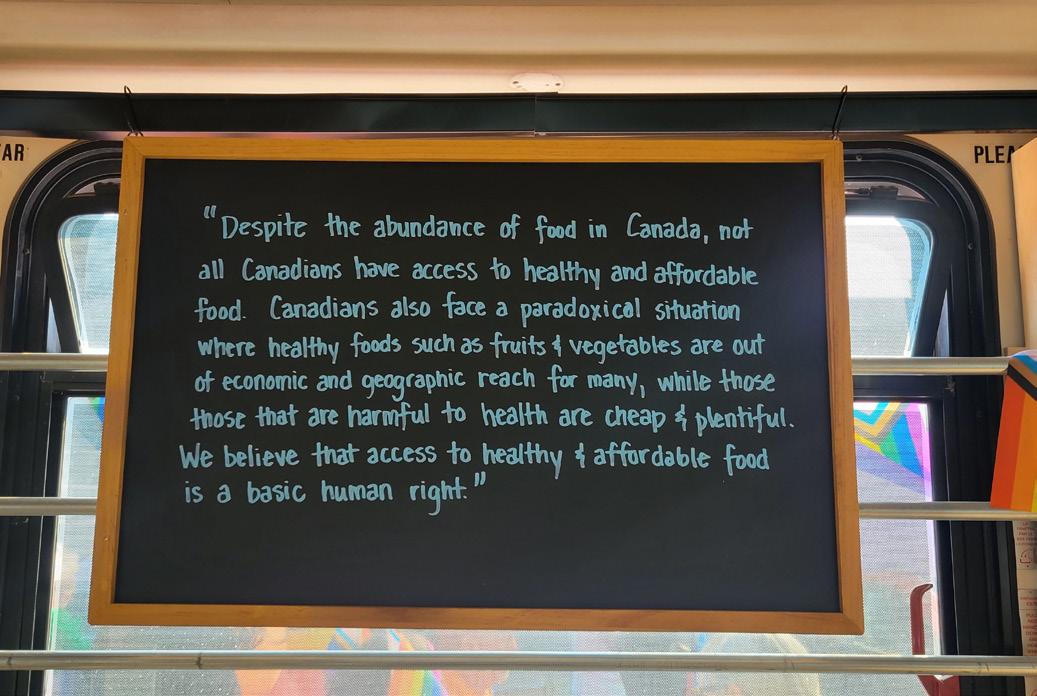 AR
PLEA
"Despite the abundance of food in Canada, not
all Canadians have access to healthy and affordable
food. Canadians also face a paradoxical situation
where healthy foods such as fruits & vegetables are out
of economic and geographic reach for many, while those
those that are harmful to health are cheap & plentiful.
We believe that access to healthy & affordable food
is a basic human right."